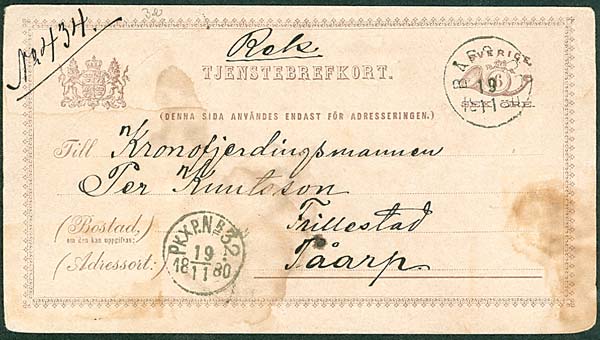 No 434.
Rek
TJENSTEBREFKORT.
SVERIGE
19
11
(DENNA SIDA ANVÄNDES ENDAST FÖR ADRESSERINGEN.)
Till Kronofjerdingsmannen
Per Knutsson
(Bostad,
om den kan uppgifvas:)
Fillestad
(Adressort:)
Tåarp
PKXP.Nr32.
19
18 11 80